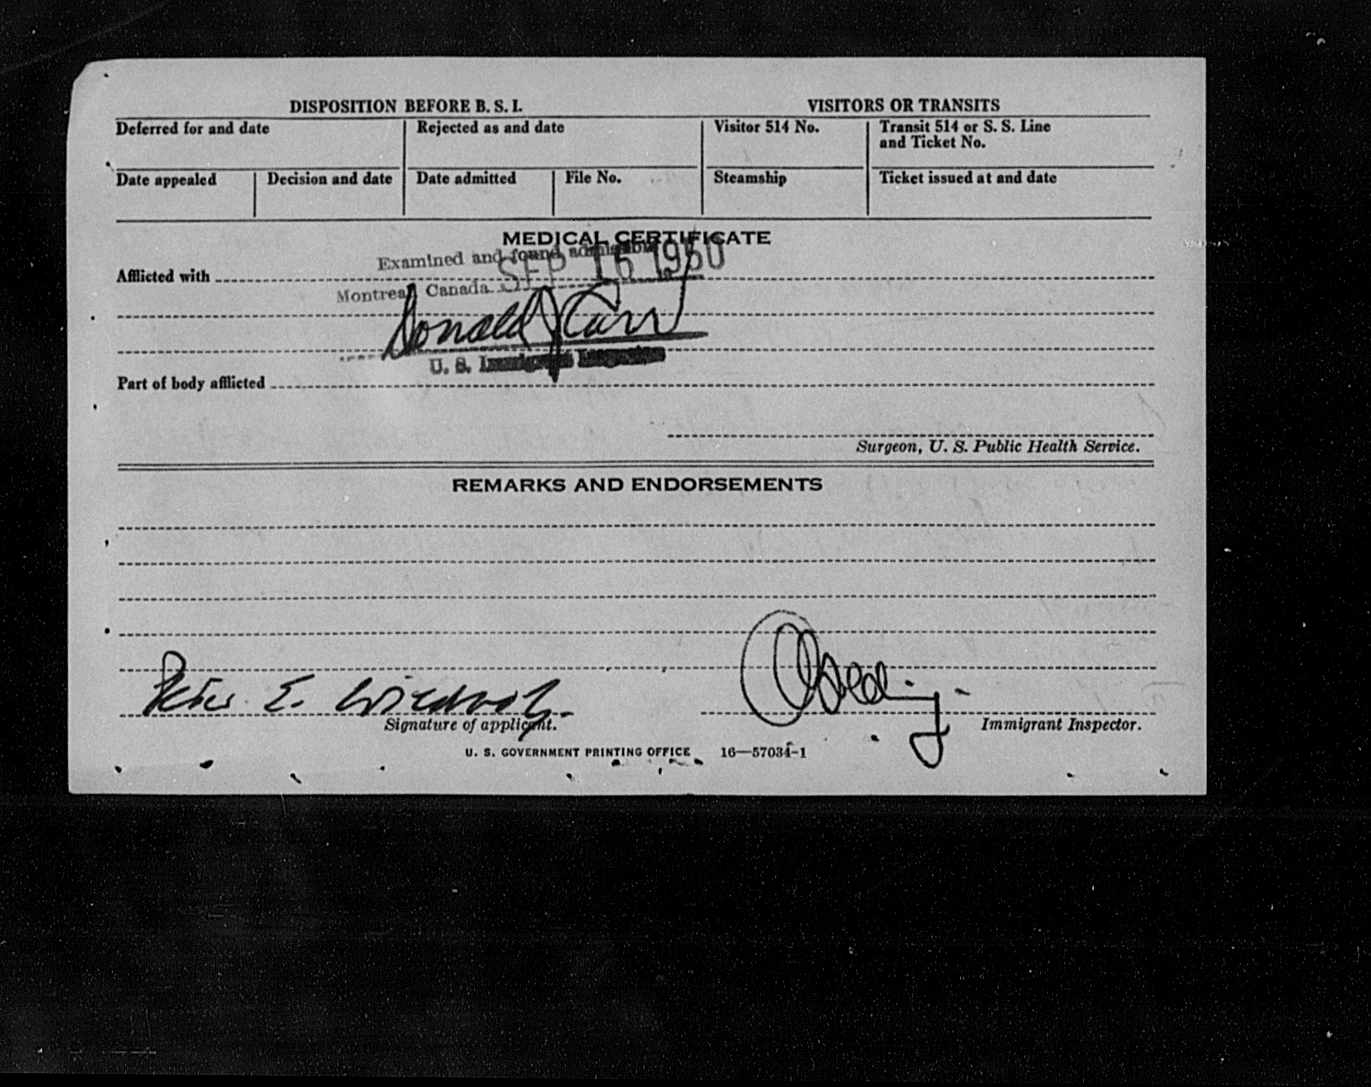 DISPOSITION BEFORE B. S. I.
VISITORS OR TRANSITS
Deferred for and date
Rejected as and date
Visitor 514 No.
Transit 514 or S. S. Line
and Ticket No.
Date appealed
Decision and date
Date admitted
File No.
Steamship
Ticket issued at and date
MEDICAL CERTIFICATE
Examined and found admissible
SEP 16 1950
Afflicted with
Montreal, Canada
Donald J Carr
U. S. Immigrant Inspector
Part of body afflicted
Surgeon, U. S. Public Health Service.
REMARKS AND ENDORSEMENTS
Peter E.
Signature of applicant.
Immigrant Inspector.
U. S. GOVERNMENT PRINTING OFFICE 16—57034-1